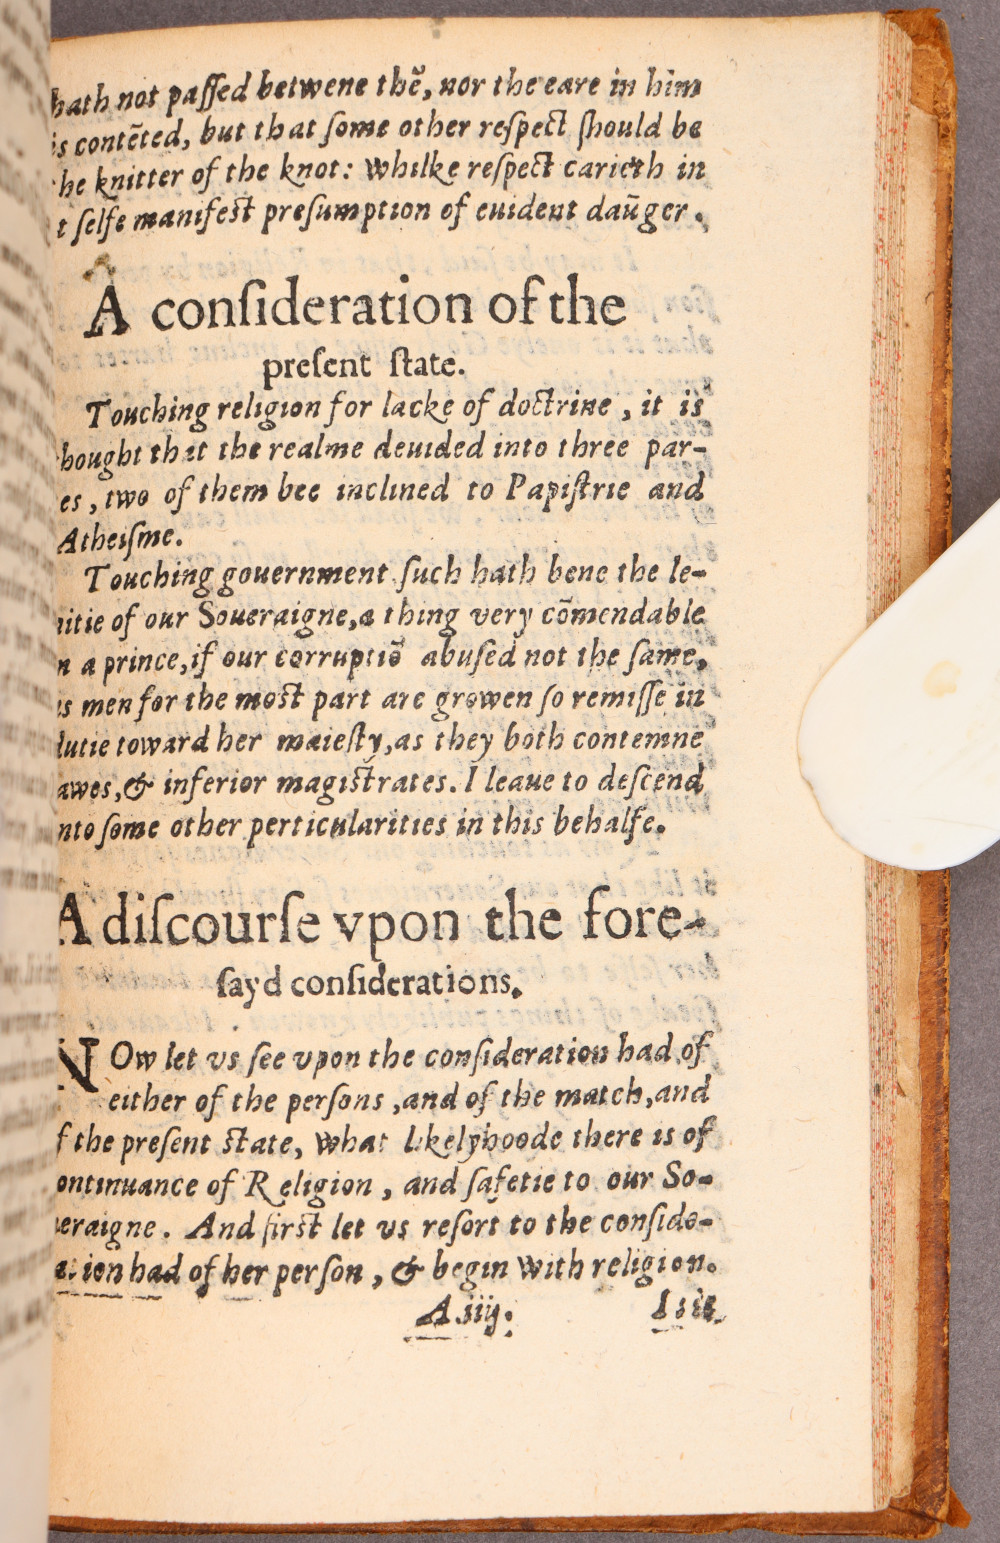 hath not paſſed betwene thẽ, nor the eare in him
is contẽted, but that ſome other reſpect ſhould be
he knitter of the knot: Whilke reſpect carieth in
t ſelfe manifeſt preſumption of euident daũger.
A conſideration of the
preſent ſtate.
Touching religion for lacke of doctrine, it is
hought that the realme deuided into three par-
es, two of them bee inclined to Papiſtrie and
Atheiſme.
Touching gouernment ſuch hath bene the le-
nitie of our Soueraigne, a thing very cõmendable
n a prince, if our corruptiõ abuſed not the ſame,
as men for the moſt part are growen ſo remiſſe in
dutie toward her maieſty, as they both contemne
lawes, & inferior magiſtrates. I leaue to deſcend
nto ſome other perticularities in this behalfe.
A diſcourſe vpon the fore-
ſayd conſiderations.
NOw let vs ſee vpon the conſideration had of
either of the perſons, and of the match, and
f the preſent ſtate, What likelyhoode there is of
ontinuance of Religion, and ſafetie to our So-
ueraigne. And firſt let vs reſort to the conſide-
ation had of her perſon, & begin With religion.
A.iiij. Isit